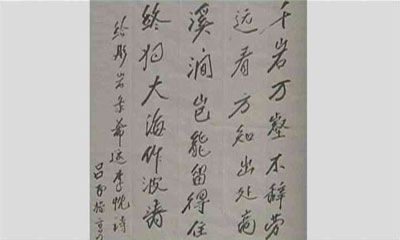 千岩万壑不辞劳
远看方知出处高
溪涧岂能留得住
终归大海作波涛
给彤岩 希运李忱诗
吕